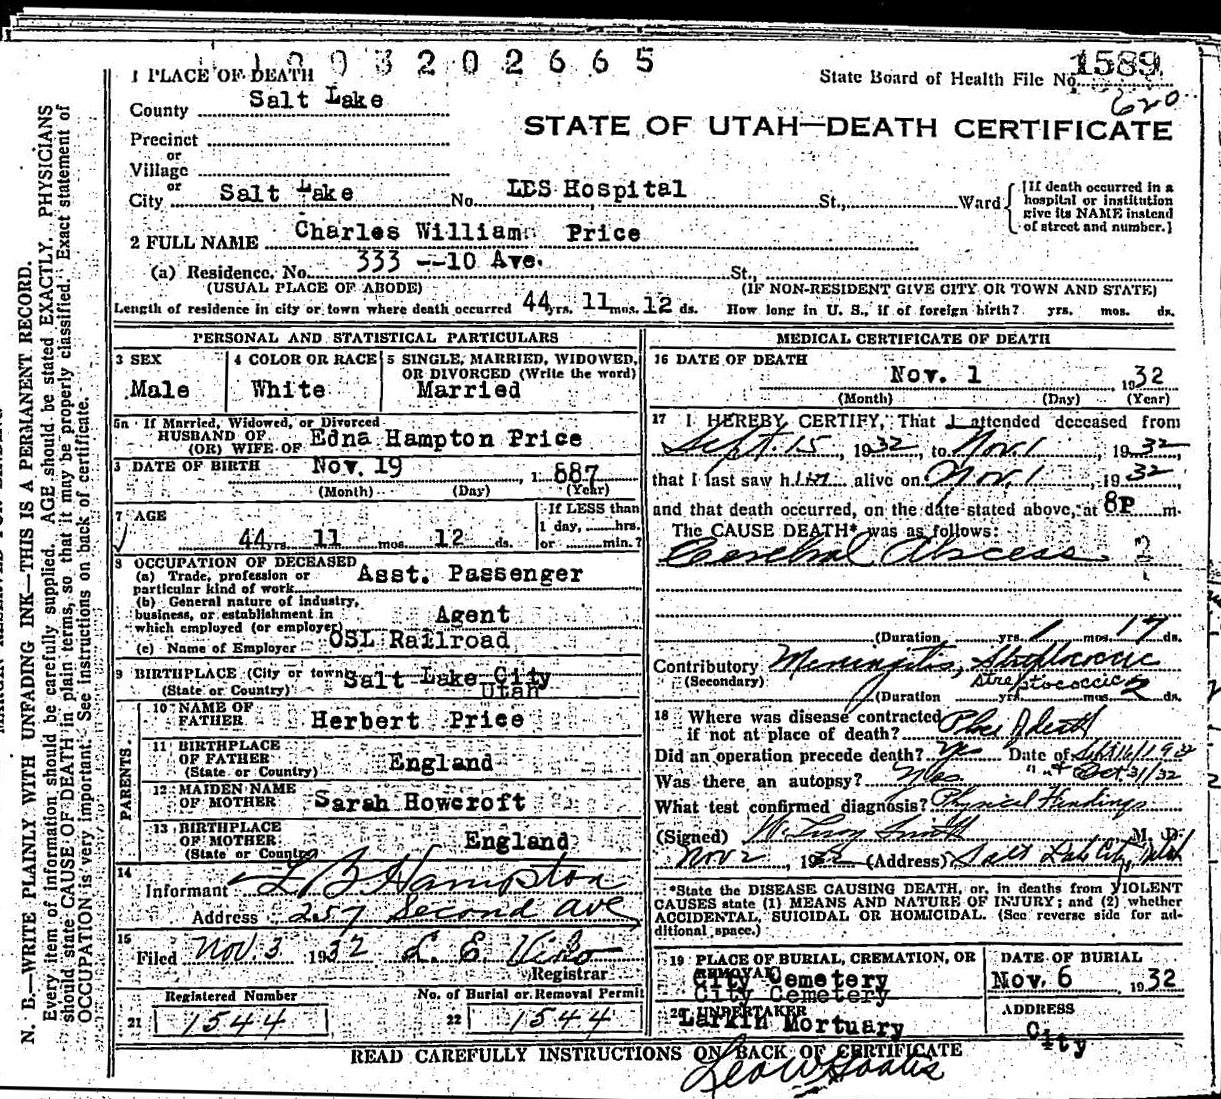 1003202665
1 PLACE OF DEATH
State Board of Health File No. 1589
620
County Salt Lake
STATE OF UTAH—DEATH CERTIFICATE
Precinct
or
Village
or
City Salt Lake No. LDS Hospital St., Ward
[If death occurred in a hospital or institution give its NAME instead of street and number.]
2 FULL NAME Charles William Price
(a) Residence. No. 333 --10 Ave. St.,
(USUAL PLACE OF ABODE) (IF NON-RESIDENT GIVE CITY OR TOWN AND STATE)
Length of residence in city or town where death occurred 44 yrs. 11 mos. 12 ds. How long in U. S., if of foreign birth? yrs. mos. ds.
PERSONAL AND STATISTICAL PARTICULARS
3 SEX
Male
4 COLOR OR RACE
White
5 SINGLE, MARRIED, WIDOWED, OR DIVORCED (Write the word)
Married
5a If Married, Widowed, or Divorced
HUSBAND OF
(OR) WIFE OF Edna Hampton Price
DATE OF BIRTH Nov. 19, 1887
(Month) (Day) (Year)
7 AGE
44 yrs. 11 mos. 12 ds.
If LESS than
1 day, hrs.
or min.?
8 OCCUPATION OF DECEASED
(a) Trade, profession or
particular kind of work Asst. Passenger
(b) General nature of industry,
business, or establishment in
which employed (or employer) Agent
(c) Name of Employer OSL Railroad
9 BIRTHPLACE (City or town) Salt Lake City
(State or Country) Utah
PARENTS
10 NAME OF
FATHER Herbert Price
11 BIRTHPLACE
OF FATHER England
(State or Country)
12 MAIDEN NAME
OF MOTHER Sarah Howcroft
13 BIRTHPLACE
OF MOTHER England
(State or Country)
14
Informant L B Hampton
Address 257 Second Ave
15
Filed Nov. 3 1932 L. E.
Registrar
Registered Number
21 1544
No. of Burial or Removal Permit
22 1544
MEDICAL CERTIFICATE OF DEATH
16 DATE OF DEATH
Nov. 1 1932
(Month) (Day) (Year)
17 I HEREBY CERTIFY, That I attended deceased from
Sept. 15, 1932, to Nov. 1, 1932,
that I last saw him alive on Nov. 1, 1932,
and that death occurred, on the date stated above, at 8P m.
The CAUSE DEATH* was as follows:
Cerebral Abscess
(Duration yrs. 1 mos. 17 ds.
Contributory Meningitis, Streptococcic
(Secondary) Streptococcic
(Duration yrs. mos. 2 ds.
18 Where was disease contracted
if not at place of death? Place of death
Did an operation precede death? Yes Date of Sept 16/1932
" " + Oct 31/32
Was there an autopsy? Yes
What test confirmed diagnosis? Physical Findings
(Signed) W. Leroy Smith M. D.
Nov 2, 1932 (Address) Salt Lake City, Utah
*State the DISEASE CAUSING DEATH, or, in deaths from VIOLENT
CAUSES state (1) MEANS AND NATURE OF INJURY; and (2) whether
ACCIDENTAL, SUICIDAL OR HOMICIDAL. (See reverse side for ad-
ditional space.)
19 PLACE OF BURIAL, CREMATION, OR
REMOVAL
City Cemetery
City Cemetery
DATE OF BURIAL
Nov. 6, 1932
20 UNDERTAKER
Larkin Mortuary
ADDRESS
City
READ CAREFULLY INSTRUCTIONS ON BACK OF CERTIFICATE
N. B.—WRITE PLAINLY WITH UNFADING INK—THIS IS A PERMANENT RECORD.
Every item of information should be carefully supplied. AGE should be stated EXACTLY. PHYSICIANS
should state CAUSE OF DEATH in plain terms, so that it may be properly classified. Exact statement of
OCCUPATION is very important. See instructions on back of certificate.